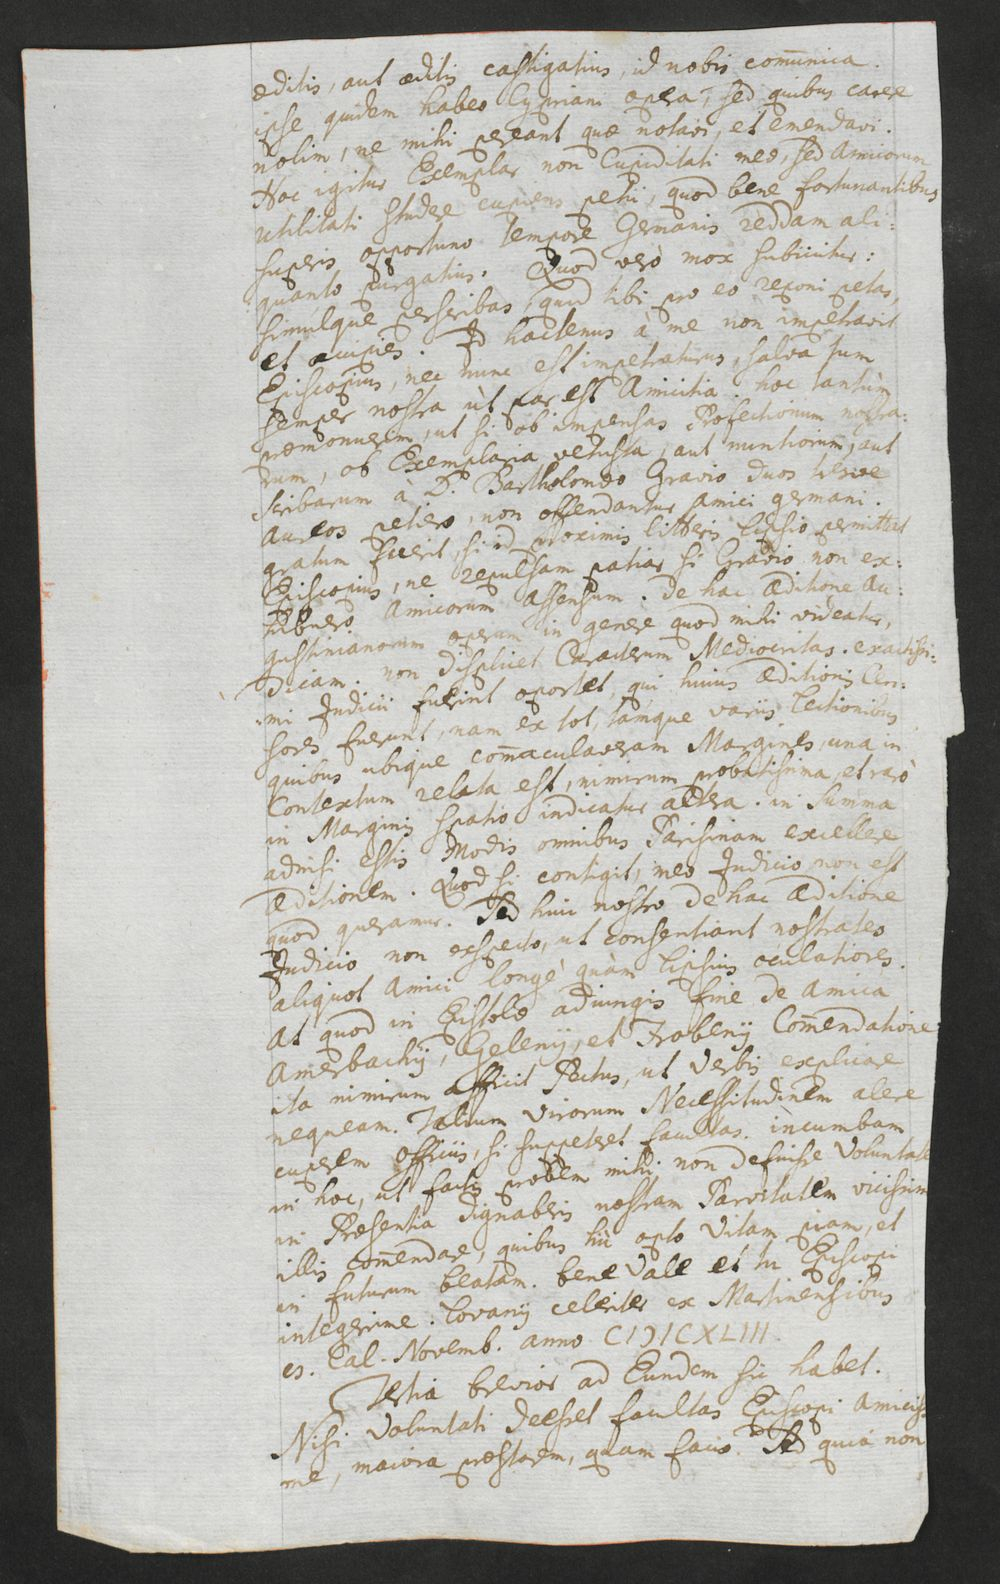 æditis, aut æditis castigatius, id nobis com̄unica.
ipse quidem habeo Cypriani opera, sed quibus carere
nolim, ne mihi pereant quæ notavi, et emendavi.
Hoc igitur Exemplar non Cupiditati meæ, sed Amicorum
utilitati studere cupiens petii, quod bene fortunantibus
superis opportuno tempore Germanis reddam ali:
quanto purgatius. Quod verò mox subiicitur:
simulque perscribas, quid tibi pro eo reponi petas,
et accipies. Id hactenus à me non impetravit
Episcopius, nec nunc est impetraturus, salva tum
semper nostra ùt par est Amicitia. hoc tantùm
præmonuerim, ut si ob impensas Profectionum nostra:
rum, ob Exemplaria vetusta, aut nuntiorum, aut
scribarum à D. Bartholomæo Gravio duos tresve
Aureos petiero, non offendantur Amici germani.
gratum fuerit, si id proximis litteris Lipsio permittat
Episcopius, ne repulsam patiar si Gravio non ex:
hibuero Amicorum Assensum. De hac Æditione Au:
gustinianorum operum in genere quod mihi videatur,
dicam. non displicet Caracterum Mediocritas. exactissi:
mi Judicii fuerint oportet, qui huius Æditionis Cen:
sores fuerunt, nam ex tot, tamque variis Lectionibus
quibus ubique com̄aculaveram Margines, una in
Contextum relata est, nimirum probatissima, et rarò
in Marginis spatio indicatur altera. in Summa
admisi estis Modis omnibus Parisinam excellere
Æditionem. Quod si contigit, meo Judicio non est
quod queramur. Sed huic nostro de hac Æditione
Judicio non exspecto, ut consentiant nostrates
aliquot Amici longè quàm Lipsius oculatiores.
At quod in Epistolæ adiungis fine de Amica
Amerbachij, Gelenij, et Frobenij Com̄endatione
ita nimirum afficit Pectus, ut Verbis explicare
nequeam. Talium Virorum Necessitudinem alere
cuperem officiis, si suppeteret facultas. incumbam
in hoc, ut factis probem mihi non defuisse Voluntatem
in Præsentia dignaberis nostram Parvitatem vicissim
illis com̄endare, quibus hic opto Vitam piam, et
in futurum beatam. bene Vale et tu Episcopi
integerrime. Lovanij celeriter ex Martinensibus
es. Cal. Novemb. anno CIƆICXLIII.
Tertia brevior ad Eundem sic habet.
Nisi Voluntati deesset facultas Episcopi Amiciss:
me, maiora præstarem, quam facio. Sed quia non